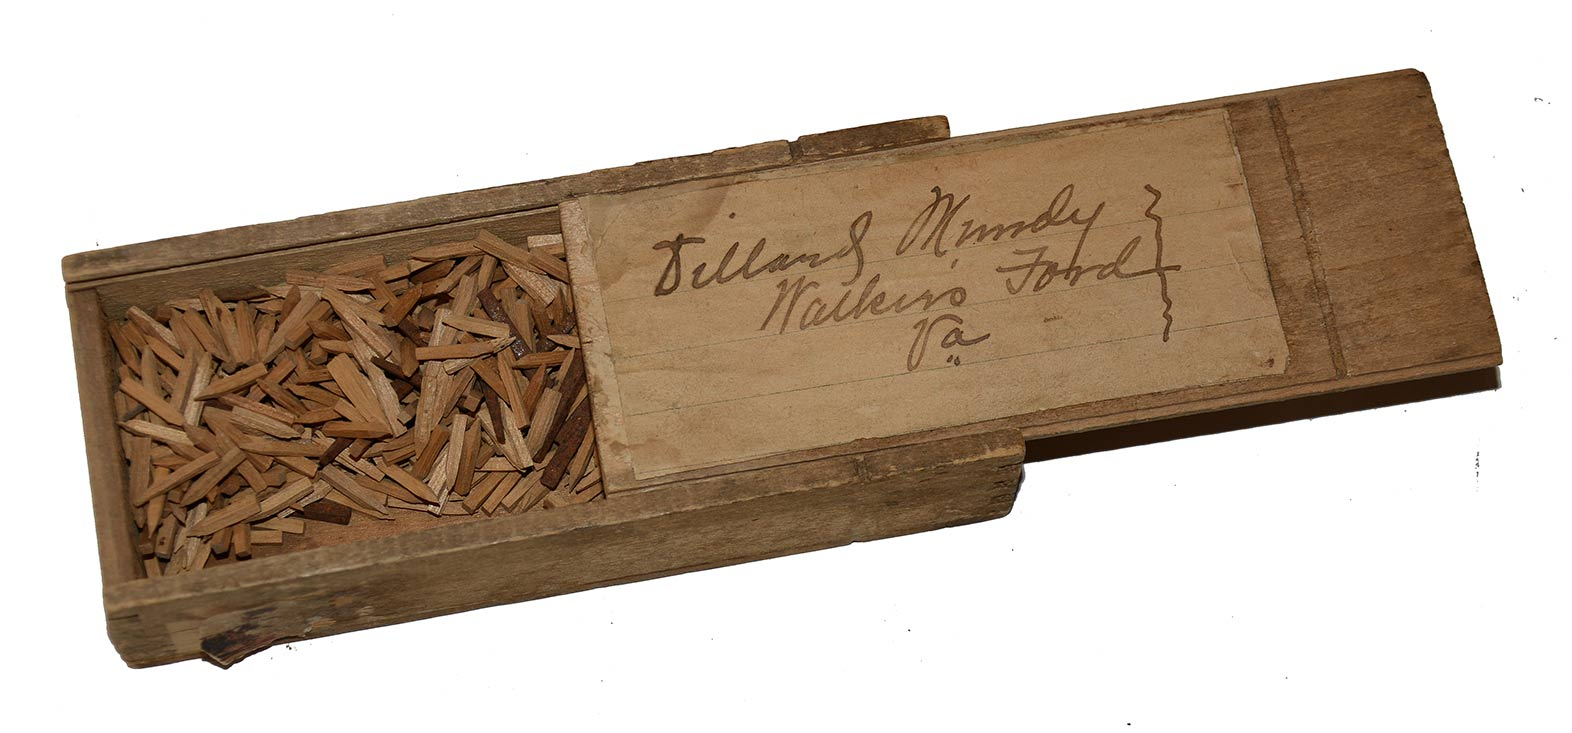 Dillard Mundy
Walkers Ford
Va